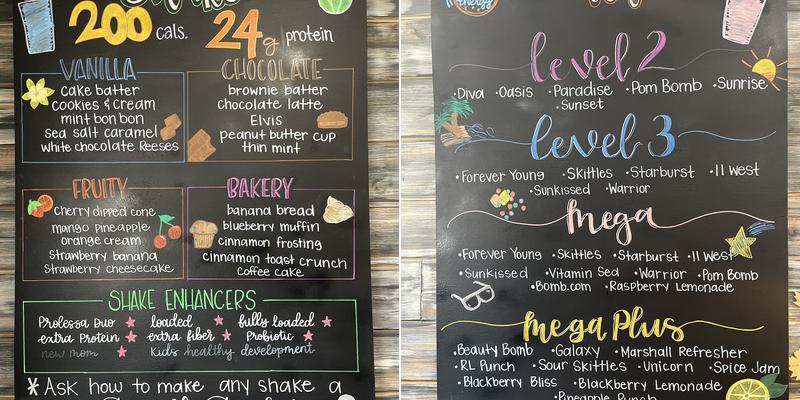 200 cals. 24g protein
VANILLA
cake batter
cookies & cream
mint bon bon
sea salt caramel
white chocolate Reeses
CHOCOLATE
brownie batter
chocolate latte
ELVIS
peanut butter cup
thin mint
FRUITY
cherry dipped cone
mango pineapple
orange cream
Strawberry banana
Strawberry cheesecake
BAKERY
banana bread
blueberry muffin
cinnamon frosting
cinnamon toast crunch
coffee cake
SHAKE ENHANCERS
Prolessa Duo ★ loaded ★ fully loaded ★
extra Protein ★ extra fiber ★ Probiotic ★
new mom ★ Kids healthy development
*Ask how to make any shake a
level 2
•Diva •Oasis •Paradise •Pom Bomb •Sunrise
•Sunset
level 3
•Forever Young •Skittles •Starburst •11 West
•Sunkissed •Warrior
mega
•Forever Young •Skittles •Starburst •11 West
•Sunkissed •Vitamin Sea •Warrior •Pom Bomb
•Bomb.com •Raspberry Lemonade
mega Plus
•Beauty Bomb •Galaxy •Marshall Refresher
•RL Punch •Sour Skittles •Unicorn •Spice Jam
•Blackberry Bliss •Blackberry Lemonade
•Pineapple Punch